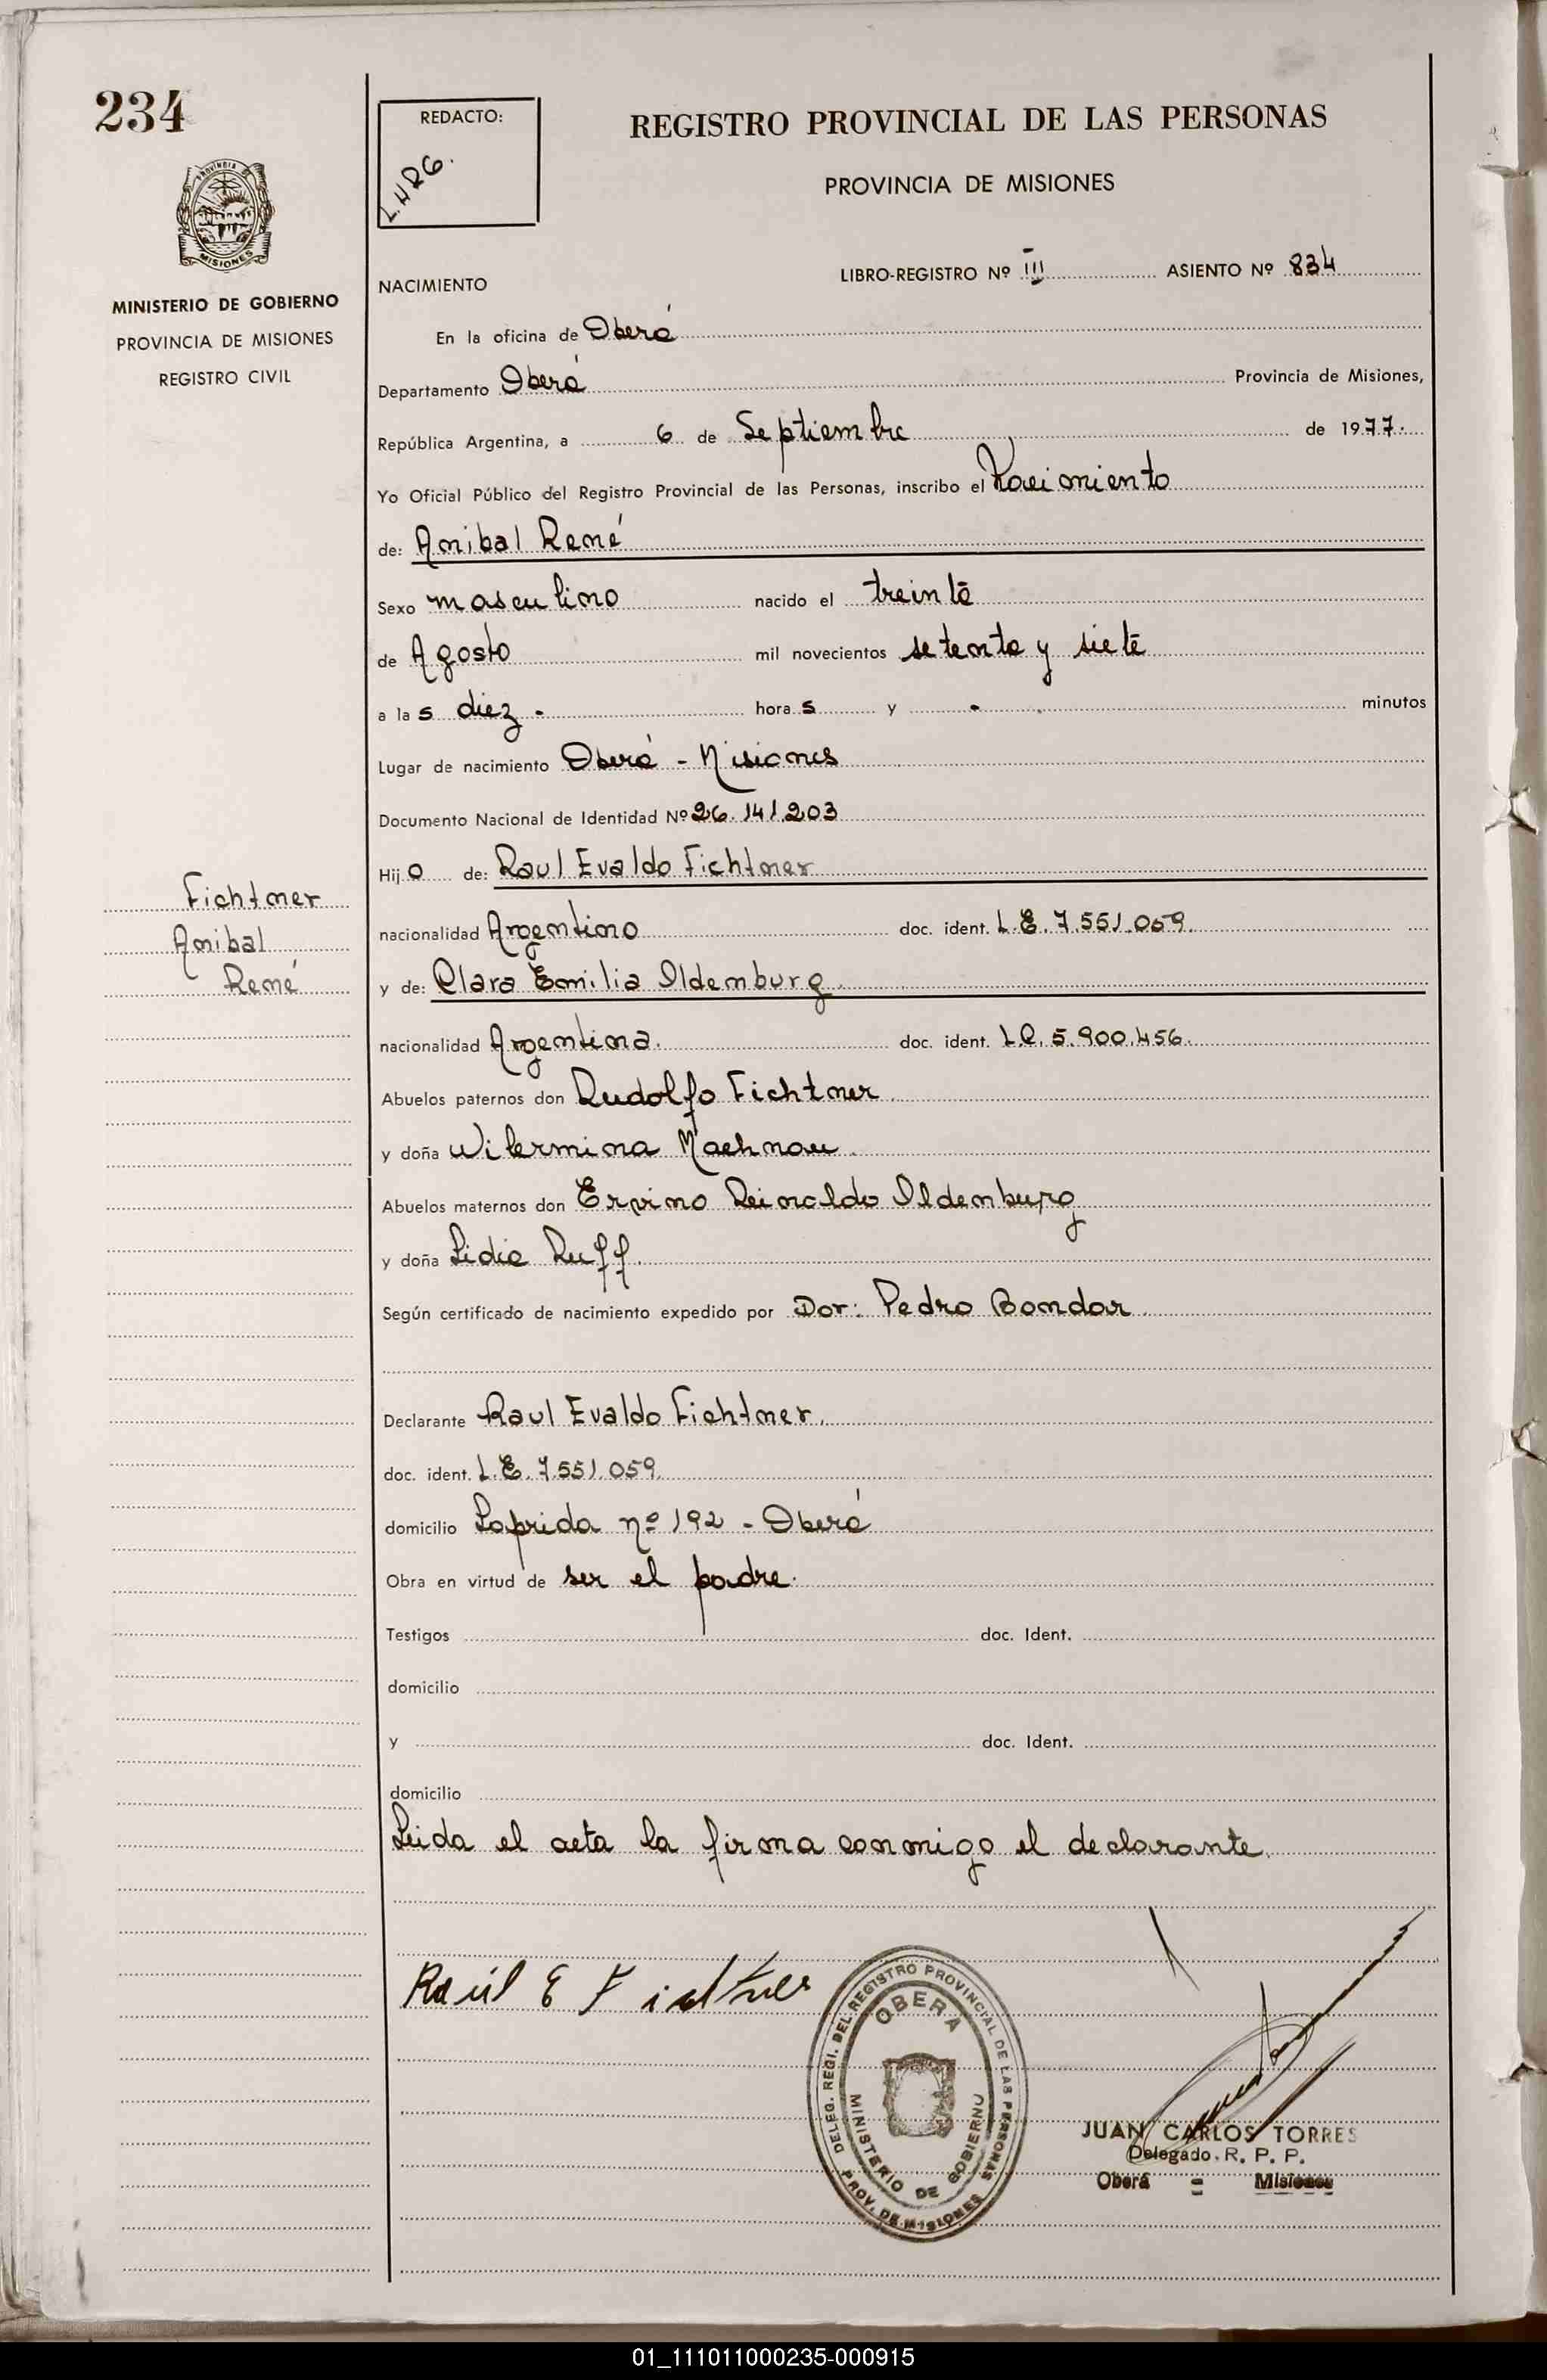 234
REDACTO:
L.H.R.G.
REGISTRO PROVINCIAL DE LAS PERSONAS
PROVINCIA DE MISIONES
PROVINCIA DE
MISIONES
MINISTERIO DE GOBIERNO
PROVINCIA DE MISIONES
REGISTRO CIVIL
LIBRO-REGISTRO Nº III ASIENTO Nº 834
NACIMIENTO
En la oficina de Oberá
Departamento Oberá Provincia de Misiones,
República Argentina, a 6 de Septiembre de 1977.
Yo Oficial Público del Registro Provincial de las Personas, inscribo el Nacimiento
de: Anibal René
Sexo masculino nacido el treinta
de Agosto mil novecientos setenta y siete
a las diez - horas y - minutos
Lugar de nacimiento Oberá - Misiones
Documento Nacional de Identidad Nº 26.141.203
Hijo de: Raul Evaldo Fichtner
Fichtner
Anibal
René
nacionalidad Argentino doc. ident. L.E. 7.551.059.
y de: Clara Emilia Oldemburg.
nacionalidad Argentina. doc. ident. L.C. 5.900.456.
Abuelos paternos don Rudolfo Fichtner.
y doña Wilermina Machnau.
Abuelos maternos don Ervino Reinaldo Oldenburg
y doña Lidia Ruff.
Según certificado de nacimiento expedido por Dor: Pedro Bondar.
Declarante Raul Evaldo Fichtner.
doc. ident. L.E. 7.551.059.
domicilio Laprida nº 192 - Oberá
Obra en virtud de ser el padre.
Testigos doc. Ident.
domicilio
y doc. Ident.
domicilio
Leida el acta la firma conmigo el declarante.
Raúl E Fichtner
DELEG. REGI. DEL REGISTRO PROVINCIAL DE LAS PERSONAS
OBERA
MINISTERIO DE GOBIERNO
PROV. DE MISIONES
JUAN CARLOS TORRES
Delegado R. P. P.
Oberá - Misiones
01_111011000235-000915